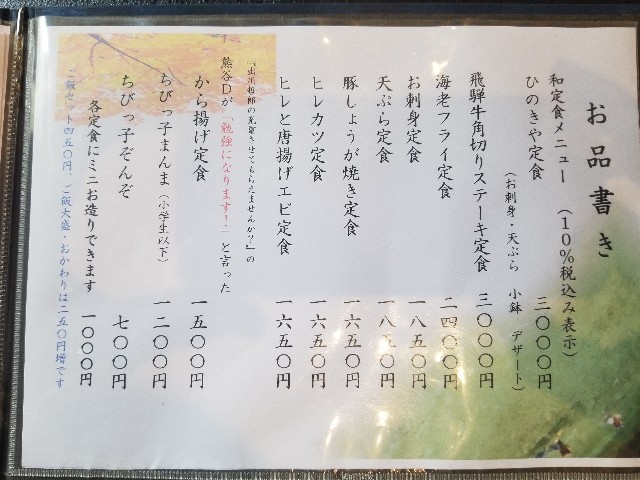 お品書き
和定食メニュー （10％税込み表示）
ひのきや定食 三〇〇〇円
（お刺身・天ぷら 小鉢 デザート）
飛騨牛角切りステーキ定食 三〇〇〇円
海老フライ定食 二四〇〇円
お刺身定食 一八五〇円
天ぷら定食 一八五〇円
豚しょうが焼き定食 一六五〇円
ヒレカツ定食 一六五〇円
ヒレと唐揚げエビ定食 一六五〇円
「出川哲郎の充電させてもらえませんか？」の
熊谷Dが「勉強になります！」と言った
から揚げ定食 一五〇〇円
ちびっ子まんま（小学生以下） 一二〇〇円
ちびっ子ぞんぞ 七〇〇円
各定食にミニお造りできます 一〇〇〇円
ご飯セット四五〇円、ご飯大盛・おかわりは二五〇円増です